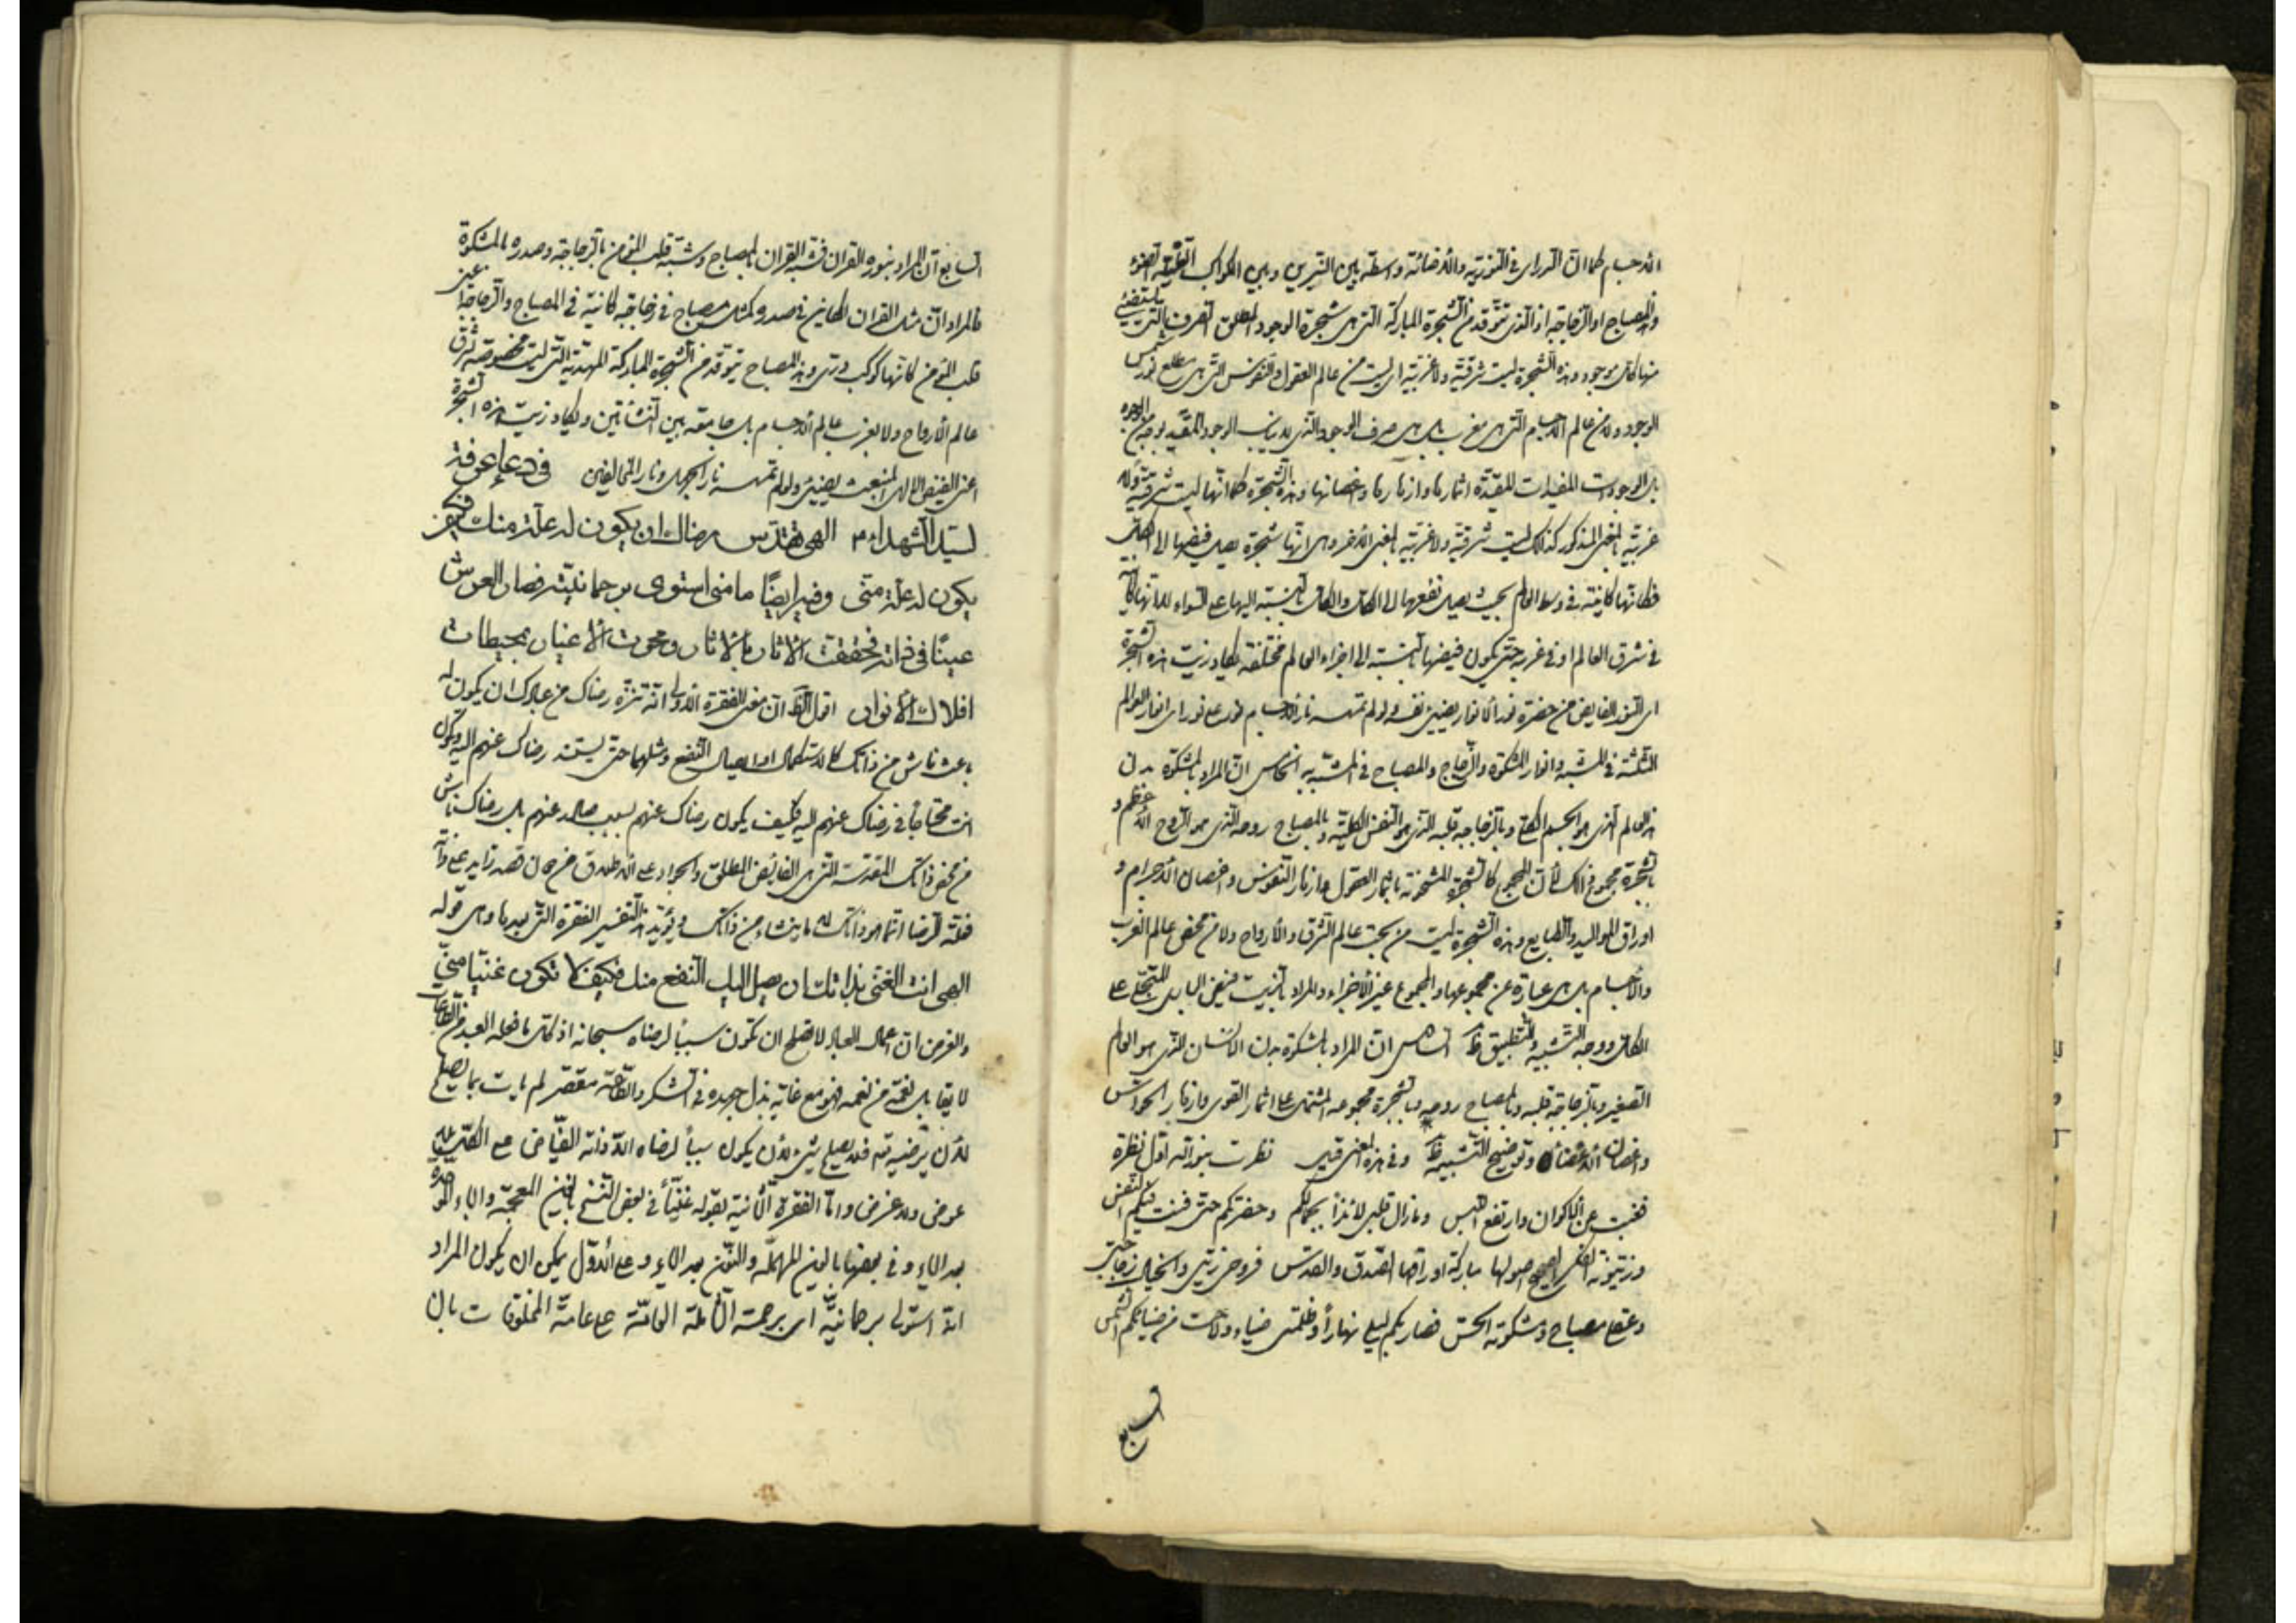 الأجسام كما ان الدراري في النورية والاضائة واسطة بين النيرين وبين الكواكب
والمصباح او الزجاجة اذ الذي توقد من الشجرة المباركة التي هي شجرة الوجود المطلق الصرف
منها كل موجود وهذه الشجرة ليست شرقية ولا غربية اي ليست من عالم العقول والنفوس التي هي مطلع نور شمس
الوجود ولا من عالم الاجسام التي هي مغرب بل هي صرف الوجود الذي الوجود المقيد بوجه من الوجوه
بل الوجودات المقيدة اثمارها وازهارها واغصانها وهذه الشجرة كما انها ليست شرقية ولا
غربية بالمعنى المذكور كذلك ليست شرقية ولا غربية بالمعنى الآخر وهي انها شجرة يصل فيضها الى الكل
فكانها كاينة في وسط العالم بحيث يصل نفعها الى الكل والكل بالنسبة اليها على السواء لا انها كاينة
في شرق العالم او في غربه حتى يكون فيضها بالنسبة الى اجزاء العالم مختلفة يكاد زيت هذه الشجرة
اي النور الفايض من حضرة نور الانوار يضيئ بنفسه ولو لم تمسسه نار الاجسام نور على نور اي انوار العوالم
الثلثة في المشبه وانوار المشكوة والزجاج والمصباح في المشبه به الخامس ان المراد بالمشكوة بدن
هذا العالم الذي هو الجسم الكل وبالزجاجة قلبه الذي هو النفس الكلية وبالمصباح روحه الذي هو الروح الاعظم و
بالشجرة مجموع ذلك لأن المجموع كالشجرة المشحونة باثمار العقول وازهار النفوس واغصان الاجرام و
اوراق المواليد والطبايع وهذه الشجرة ليست من بحت عالم الشرق والأرواح ولا من محض عالم الغرب
والأجسام بل هي عبارة عن مجموعها والمجموع غير الأجزاء والمراد بالزيت فيض الباري المتجلي على
الكل ووجه التشبيه والتطبيق ظ السادس ان المراد بالمشكوة بدن الانسان الذي هو العالم
الصغير وبالزجاجة قلبه وبالمصباح روحه وبالشجرة مجموعه المشتمل على اثمار القوى وازهار الحواس
واغصان الأعضاء وتوضيح التشبيه ظ وفي هذه المعنى قيل نظرت بنور الله اول نظرة
فغبت عن الاكوان وارتفع اللبس وما زال قلبي لائذاً بجمالكم وحضرتكم حتى فنت فيكم النفس
وزيتونة الفكر الصحيح اصولها مباركة اوراقها الصدق والقدس فروحي زيتي والخيال زجاجتي
وعقلي مصباح ومشكوته الحس فصار بكم ليلي نهاراً وظلمتي ضياء ولاحت من ضيائكم الشمس
السابع
السابع ان المراد بنوره القران فشبه القران بالمصباح وشبه قلب المؤمن بالزجاجة وصدره بالمشكوة
فالمراد ان مثل القران الكاين في صدره كمثل مصباح في زجاجة كاينة في المصباح والزجاجة اعني
قلب المؤمن كانها كوكب دري وهذا المصباح يتوقد من الشجرة المباركة التي ليست مخصوصة بشرق
عالم الأرواح ولا بغرب عالم الأجسام بل جامعة بين النشأتين ويكاد زيت هذه الشجرة
اعني الفيض الالهي المنبعث يضيئ ولو لم تمسسه نار الجهل ونار المخالفين في دعاء عرفة
لسيد الشهداء ع الهي تقدس رضاك ان يكون له علة منك فكيف
يكون له علة مني وفيه ايضاً يا من استوى برحمانيته فصار العرش
غيبًا في ذاته محقت الآثار بالآثار ومحوت الأغيار بمحيطات
افلاك الأنوار اقول الظ ان معنى الفقرة الأولى انه تنزه رضاك من عبادك ان يكون له
باعث ناش من ذاتك كالاستكمال او ايصال النفع ومثلهما حتى يستند رضاك عنهم اليه وتكون
انت محتاجا في رضاك عنهم اليه فكيف يكون رضاك عنهم بسبب صادر عنهم بل رضاك ناش
من محض ذاتك المقدسة التي هي الفايض المطلق والجواد على الاطلاق من دون قصد زايد على ذاته
فعلة الرضا انما هو ذاتك لا ما ينشاء من ذاتك ويؤيد هذا التفسير الفقرة التي بعدها وهي قوله
الهي انت الغني بذاتك ان يصل اليك النفع منك فكيف لا تكون غنيا مني
والغرض ان اعمال العباد لا تصلح ان تكون سبباً لرضاه سبحانه اذ كل ما فعله العبد من الطاعات
لا يقابل نعمة من نعمه فهو مع غاية بذل جهده في الشكر والطاعة مقصر لم يات بما يصلح
لأن يرضيه به فلا يصلح شيء لأن يكون سبباً لرضاه الا ذاته الفياض على الكل بلا
عوض ولا غرض واما الفقرة الثانية فقوله غيباً في بعض النسخ بالغين المعجمة والباء الموحدة
بعد الياء وفي بعضها بالعين المهملة والنون بعد الياء وعلى الأول يمكن ان يكون المراد
انه استولى برحمانيته اي برحمته الشاملة العامة على عامة المخلوقات بان